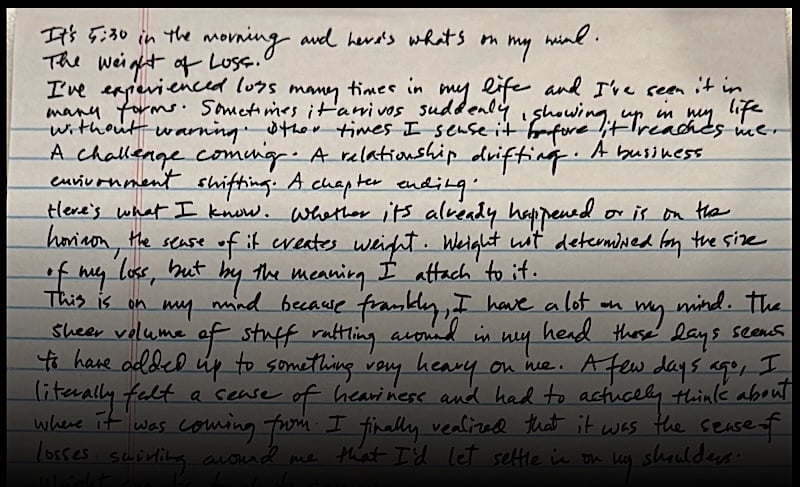 It's 5:30 in the morning and here's what's on my mind.
The Weight of Loss.
I've experienced loss many times in my life and I've seen it in
many forms. Sometimes it arrives suddenly, showing up in my life
without warning. Other times I sense it before it reaches me.
A challenge coming. A relationship drifting. A business
environment shifting. A chapter ending.
Here's what I know. Whether its already happened or is on the
horizon, the sense of it creates weight. Weight not determined by the size
of my loss, but by the meaning I attach to it.
This is on my mind because frankly, I have a lot on my mind. The
sheer volume of stuff rattling around in my head these days seems
to have added up to something very heavy on me. A few days ago, I
literally felt a sense of heaviness and had to actually think about
where it was coming from. I finally realized that it was the sense of
losses swirling around me that I'd let settle in on my shoulders.
Weight